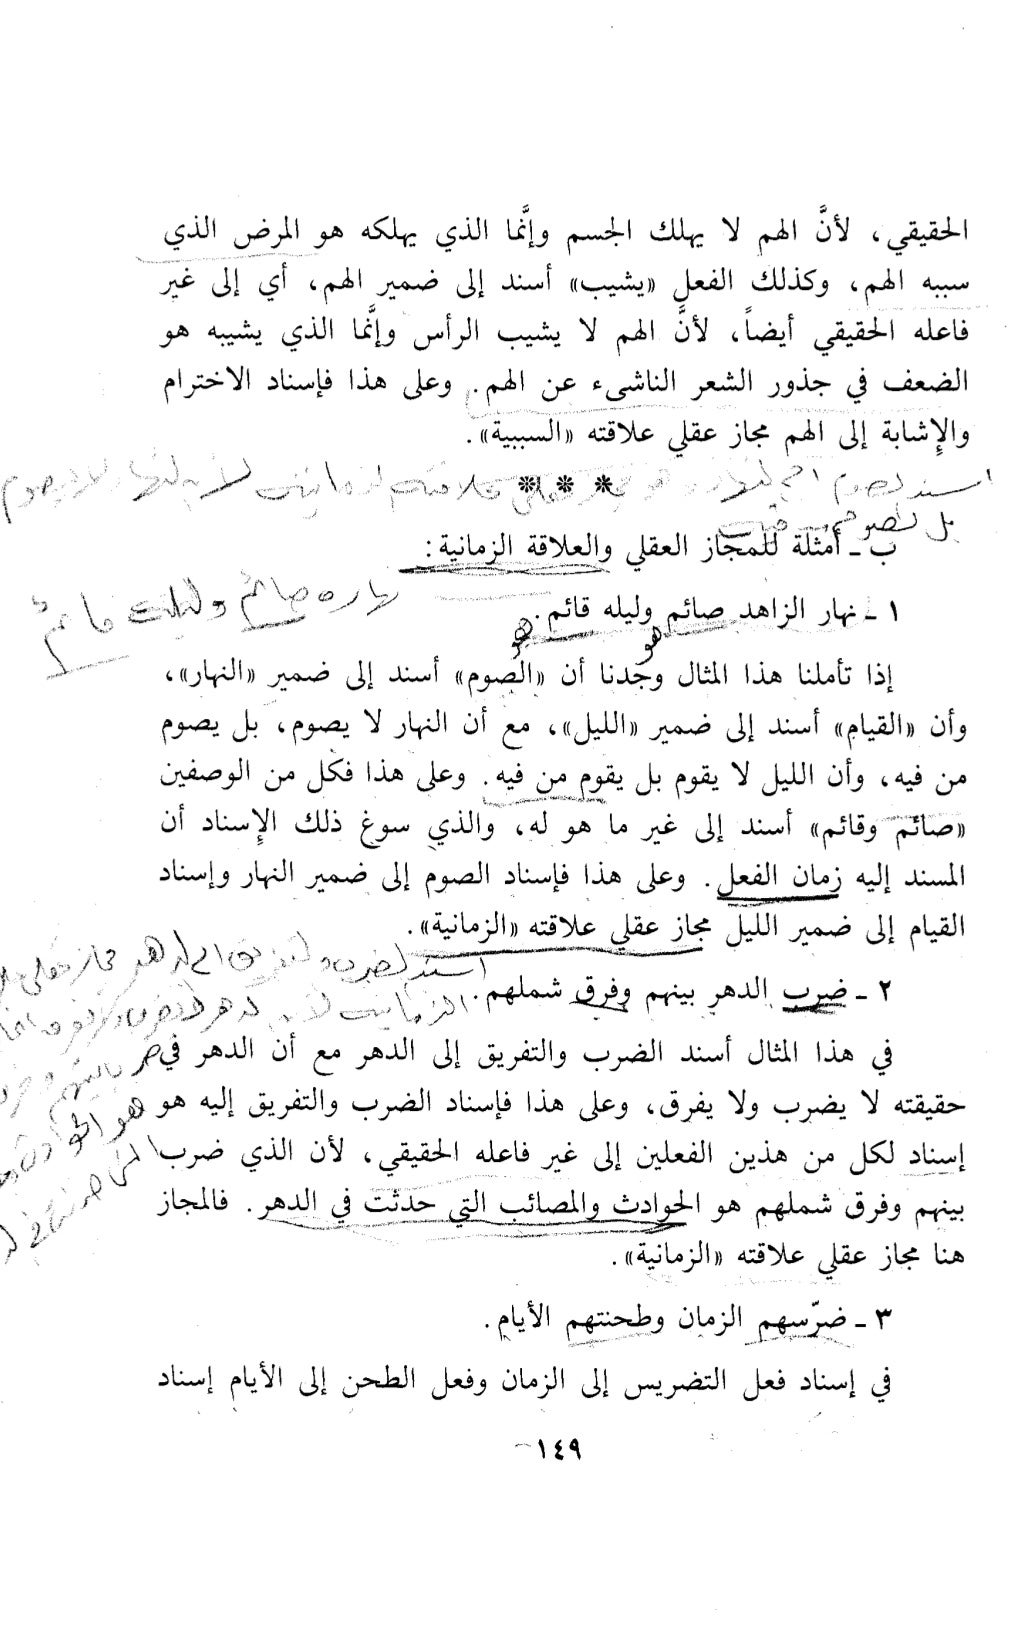 الحقيقي، لأنَّ الهم لا يهلك الجسم وإنَّما الذي يهلكه هو المرض الذي
سببه الهم، وكذلك الفعل «يشيب» أسند إلى ضمير الهم، أي إلى غير
فاعله الحقيقي أيضاً، لأنَّ الهم لا يشيب الرأس وإنَّما الذي يشيبه هو
الضعف في جذور الشعر الناشىء عن الهم. وعلى هذا فإسناد الاخترام
والإشابة إلى الهم مجاز عقلي علاقته «السببية».
* * *
بل الصوم
ب ـ أمثلة للمجاز العقلي والعلاقة الزمانية:
نهاره صائم وليله قائم
١ ـ نهار الزاهد صائم وليله قائم.
هو هو
إذا تأملنا هذا المثال وجدنا أن «الصوم» أسند إلى ضمير «النهار»،
وأن «القيام» أسند إلى ضمير «الليل»، مع أن النهار لا يصوم، بل يصوم
من فيه، وأن الليل لا يقوم بل يقوم من فيه. وعلى هذا فكل من الوصفين
«صائم وقائم» أسند إلى غير ما هو له، والذي سوغ ذلك الإسناد أن
المسند إليه زمان الفعل. وعلى هذا فإسناد الصوم إلى ضمير النهار وإسناد
القيام إلى ضمير الليل مجاز عقلي علاقته «الزمانية».
٢ ـ ضرب الدهر بينهم وفرق شملهم.
في هذا المثال أسند الضرب والتفريق إلى الدهر مع أن الدهر في
حقيقته لا يضرب ولا يفرق، وعلى هذا فإسناد الضرب والتفريق إليه هو
إسناد لكل من هذين الفعلين إلى غير فاعله الحقيقي، لأن الذي ضرب
بينهم وفرق شملهم هو الحوادث والمصائب التي حدثت في الدهر. فالمجاز
هنا مجاز عقلي علاقته «الزمانية».
٣ ـ ضرّسهم الزمان وطحنتهم الأيام.
في إسناد فعل التضريس إلى الزمان وفعل الطحن إلى الأيام إسناد
١٤٩